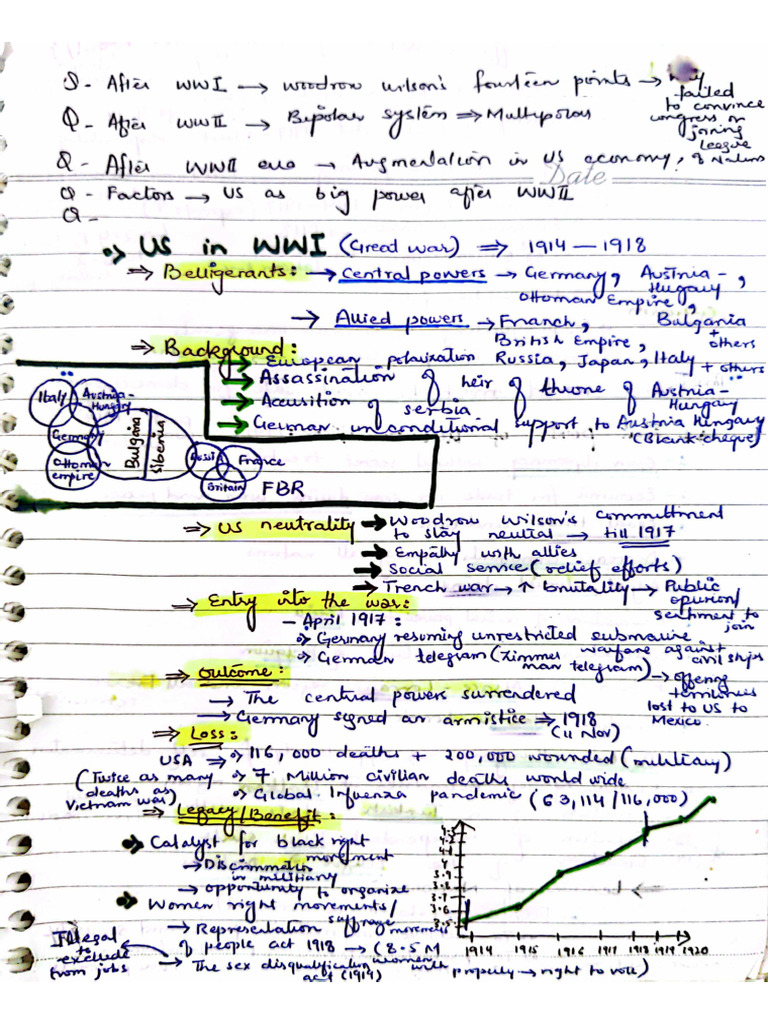 Q- After WWI → woodrow wilson's fourteen points →
failed
to convince
congress on
joining
League
of Nations
Q- After WWII → Bipolar system ⇒ Multipolar
Q- After WWII era → Augmentation in US economy,
Date
Q- Factors → US as big power after WWII
Q-
US in WWI (Great war) ⇒ 1914 — 1918
⇒ Belligerants: → Central powers → Germany, Austria-Hungary,
Ottoman Empire,
Bulgaria
→ Allied powers → Franch,
British Empire,
+ others
⇒ Background:
European polarization
Russia, Japan, Italy + others
→ Assassination of heir of throne of Austria-Hungary
→ Accusition of serbia
→ German unconditional support to Austria Hungary
(Blank cheque)
Italy
Austria-Hungary
Germany
Ottoman empire
Bulgaria
Siberia
Russia
France
Britain
FBR
⇒ US neutrality → Woodrow Wilson's committment
to stay neutral → till 1917
→ Empathy with allies
→ Social service (relief efforts)
→ Trench war → ↑ brutality → Public
opinion/
sentiment to
join
⇒ Entry into the war:
- April 1917:
Germany resuming unrestricted submarine
warfare against
civil ships
German telegram (Zimmerman telegram) → offering
territories
lost to US to
Mexico.
⇒ Outcome:
→ The central powers surrendered
→ Germany signed an armistice ⇒ 1918
(11 Nov)
⇒ Loss:
USA ⇒ 116,000 deaths + 200,000 wounded (military)
(Twice as many
deaths as
Vietnam war)
7 Million civilian deaths world wide
Global Influenza pandemic (63,114/116,000)
⇒ Legacy/Benefit:
Catalyst for black right
movement
→ Discrimination
in millitiary
→ opportunity to organize
Women right movements/
suffrage
movements
→ Representation
of people act 1918 → (8.5 M
women
with property → right to vote)
→ The sex disqualification
act (1919)
Illegal
to
exclude
from jobs
4.3
4.2
4.1
4
3.9
3.8
3.7
3.6
3.5
1914 1915 1916 1917 1918 1919 1920